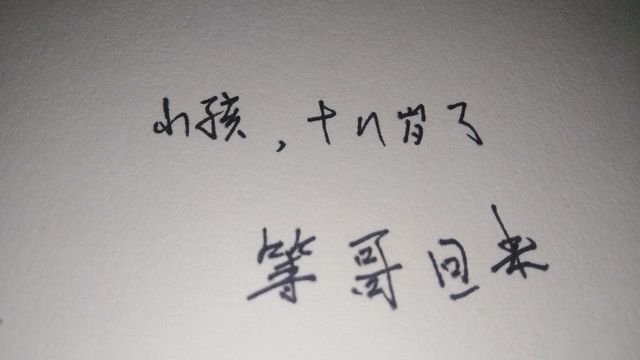 小孩，十八岁了
等哥回来